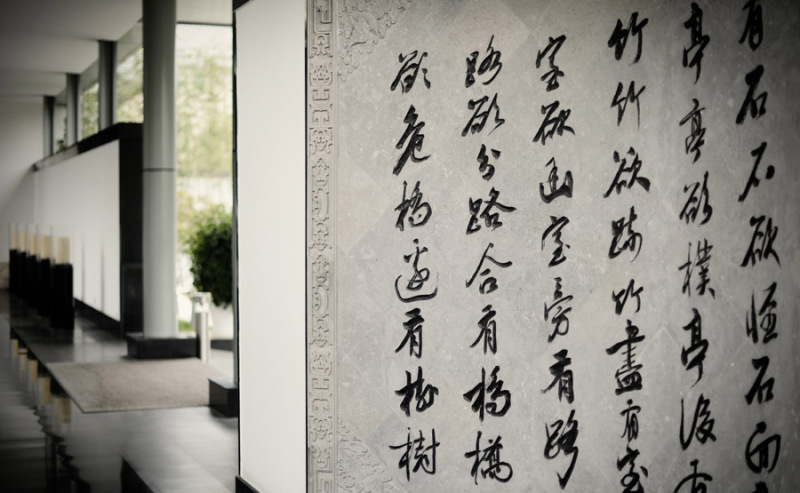 有石石欲怪石面
亭亭欲樸亭後有
竹竹欲疏竹盡有室
室欲幽室旁有路
路欲分路合有橋橋
欲危橋邊有樹樹